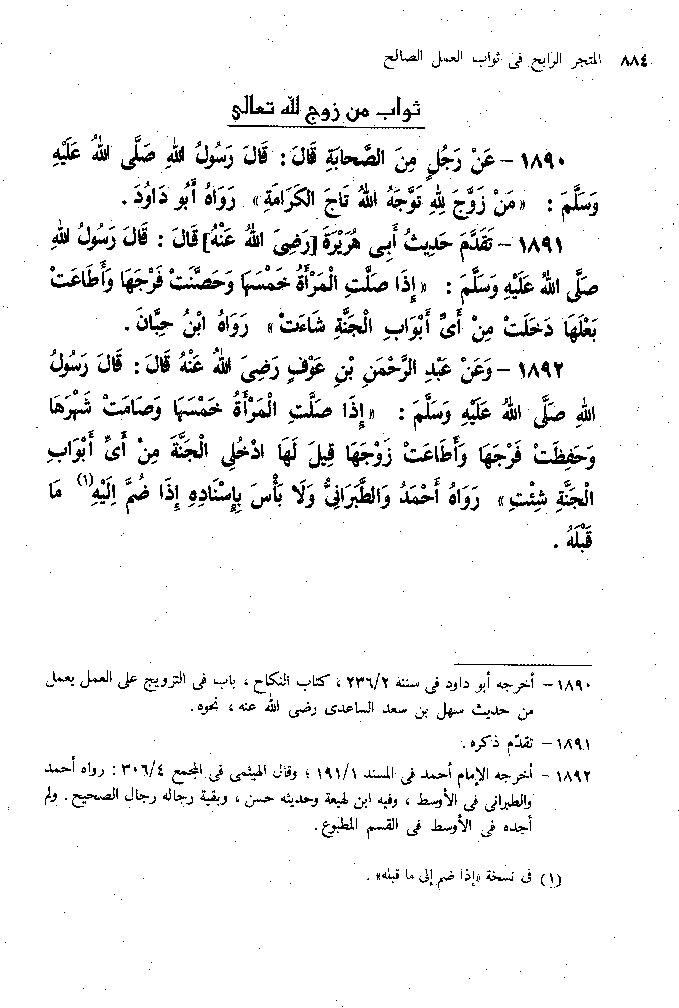 ٨٨٤ المتجر الرابح فى ثواب العمل الصالح
ثواب من زوج لله تعالى
١٨٩٠ - عَنْ رَجُلٍ مِنَ الصَّحَابَةِ قَالَ : قَالَ رَسُولُ اللهِ صَلَّى اللهُ عَلَيْهِ
وَسَلَّمَ : « مَنْ زَوَّجَ لِلهِ تَوَّجَهُ اللهُ تَاجَ الكَرَامَةِ» رَوَاهُ أَبُو دَاوُدَ .
١٨٩١ - تَقَدَّمَ حَدِيثُ أَبِى هُرَيْرَةَ [رَضِىَ اللهُ عَنْهُ] قَالَ : قَالَ رَسُولُ اللهِ
صَلَّى اللهُ عَلَيْهِ وَسَلَّمَ : «إِذَا صَلَّتِ الْمَرْأَةُ خَمْسَهَا وَحَصَّنَتْ فَرْجَهَا وَأَطَاعَتْ
بَعْلَهَا دَخَلَتْ مِنْ أَىِّ أَبْوَابِ الْجَنَّةِ شَاءَتْ» رَوَاهُ ابْنُ حِبَّانَ .
١٨٩٢ - وَعَنْ عَبْدِ الرَّحْمَنِ بْنِ عَوْفٍ رَضِىَ اللهُ عَنْهُ قَالَ : قَالَ رَسُولُ
اللهِ صَلَّى اللهُ عَلَيْهِ وَسَلَّمَ : «إِذَا صَلَّتِ الْمَرْأَةُ خَمْسَهَا وَصَامَتْ شَهْرَهَا
وَحَفِظَتْ فَرْجَهَا وَأَطَاعَتْ زَوْجَهَا قِيلَ لَهَا ادْخُلِى الْجَنَّةَ مِنْ أَىِّ أَبْوَابِ
الْجَنَّةِ شِئْتِ» رَوَاهُ أَحْمَدُ وَالطَّبَرَانِىُّ وَلَا بَأْسَ بِإِسْنَادِهِ إِذَا ضُمَّ إِلَيْهِ(١) مَا
قَبْلَهُ .
١٨٩٠ - أخرجه أبو داود فى سننه ٢٣٦/٢ ، كتاب النكاح ، باب فى التزويج على العمل يعمل
من حديث سهل بن سعد الساعدى رضى الله عنه ، نحوه .
١٨٩١ - تقدّم ذكره .
١٨٩٢ - أخرجه الإمام أحمد فى المسند ١٩١/١ ؛ وقال الهيثمى فى المجمع ٣٠٦/٤ : رواه أحمد
والطبرانى فى الأوسط ، وفيه ابن لهيعة وحديثه حسن ، وبقية رجاله رجال الصحيح . ولم
أجده فى الأوسط فى القسم المطبوع .
(١) فى نسخة «إذا ضم إلى ما قبله» .